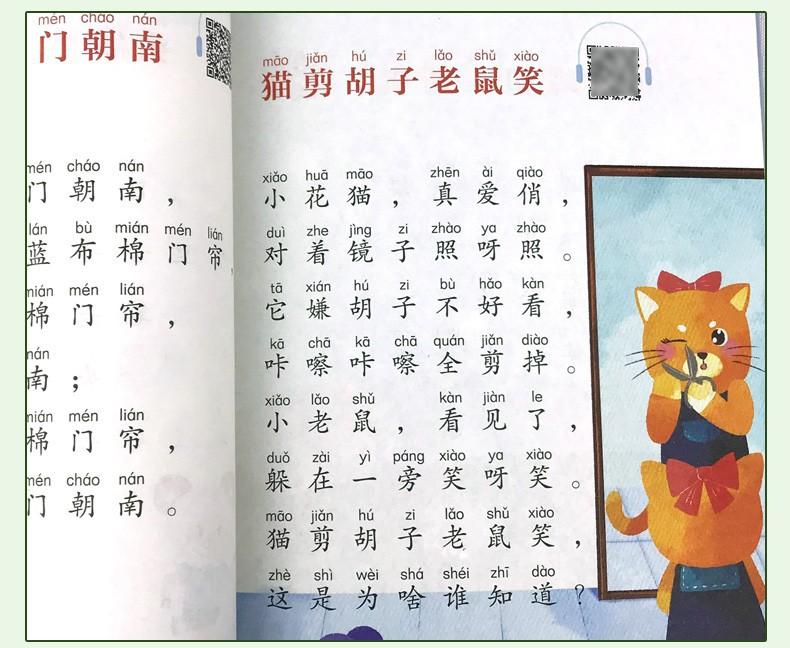 mén cháo nán
门朝南
mén cháo nán
门朝南，
lán bù mián mén lián
蓝布棉门帘，
mián mén lián
棉门帘，
nán
南；
mián mén lián
棉门帘，
mén cháo nán
门朝南。
māo jiǎn hú zi lǎo shǔ xiào
猫剪胡子老鼠笑
xiǎo huā māo zhēn ài qiào
小花猫，真爱俏，
duì zhe jìng zi zhào ya zhào
对着镜子照呀照。
tā xián hú zi bù hǎo kàn
它嫌胡子不好看，
kā chā kā chā quán jiǎn diào
咔嚓咔嚓全剪掉。
xiǎo lǎo shǔ kàn jiàn le
小老鼠，看见了，
duǒ zài yì páng xiào ya xiào
躲在一旁笑呀笑。
māo jiǎn hú zi lǎo shǔ xiào
猫剪胡子老鼠笑，
zhè shì wèi shá shéi zhī dào
这是为啥谁知道？